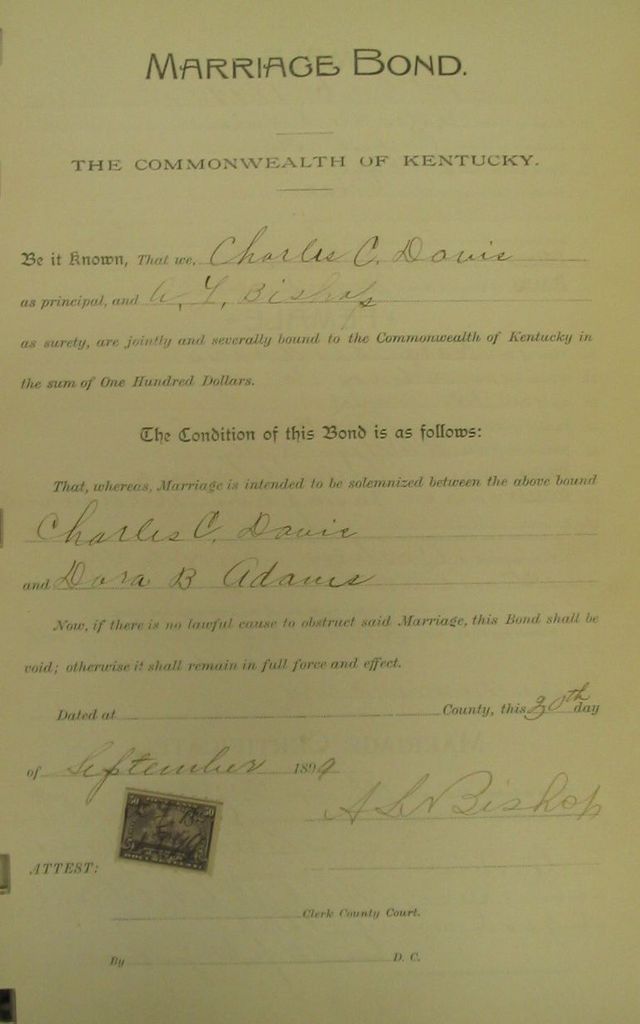 MARRIAGE BOND.
THE COMMONWEALTH OF KENTUCKY.
Be it Known, That we, Charles C. Davis
as principal, and A. L. Bishop
as surety, are jointly and severally bound to the Commonwealth of Kentucky in
the sum of One Hundred Dollars.
The Condition of this Bond is as follows:
That, whereas, Marriage is intended to be solemnized between the above bound
Charles C. Davis
and Dora B Adams
Now, if there is no lawful cause to obstruct said Marriage, this Bond shall be
void; otherwise it shall remain in full force and effect.
Dated at County, this 30th day
of September 1899
A L Bishop
50 50
ATTEST:
Clerk County Court.
By D. C.